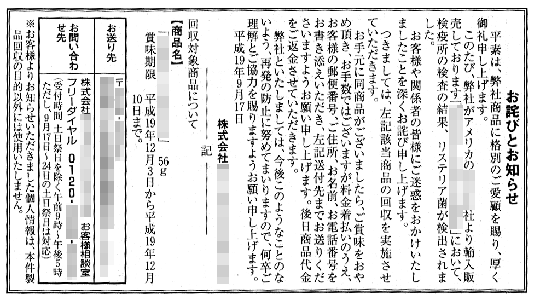 お詫びとお知らせ
平素は、弊社商品に格別のご愛顧を賜り、厚く
御礼申し上げます。
このたび、弊社がアメリカの 社より輸入販
売しております において、
検疫所の検査の結果、リステリア菌が検出されま
した。
お客様や関係者の皆様にご迷惑をおかけいたし
ましたことを深くお詫び申し上げます。
つきましては、左記該当商品の回収を実施させ
ていただきます。
お手元に同商品がございましたら、ご賞味をおや
め頂き、お手数ではございますが料金着払いのうえ、
お客様の郵便番号、ご住所、お名前、お電話番号を
お書き添えいただき、左記送付先までお送りくだ
さいますようお願い申し上げます。後日商品代金
をご返金させていただきます。
弊社といたしましては、今後このようなことのな
いよう、再発の防止に努めてまいりますので、何卒ご
理解とご協力を賜りますようお願い申し上げます。
平成19年9月17日
株式会社
記
回収対象商品について
【商品名】
56g
賞味期限 平成19年12月3日から平成19年12月
10日まで。
お送り先
〒
株式会社 お客様相談室
お問い合わ
せ先
フリーダイヤル 0120-
(受付時間 土日祭日を除く午前9時~午後5時
ただし、9月17日~24日の土日祭日は対応)
※お客様よりお知らせいただきました個人情報は、本件製
品回収の目的以外には使用いたしません。